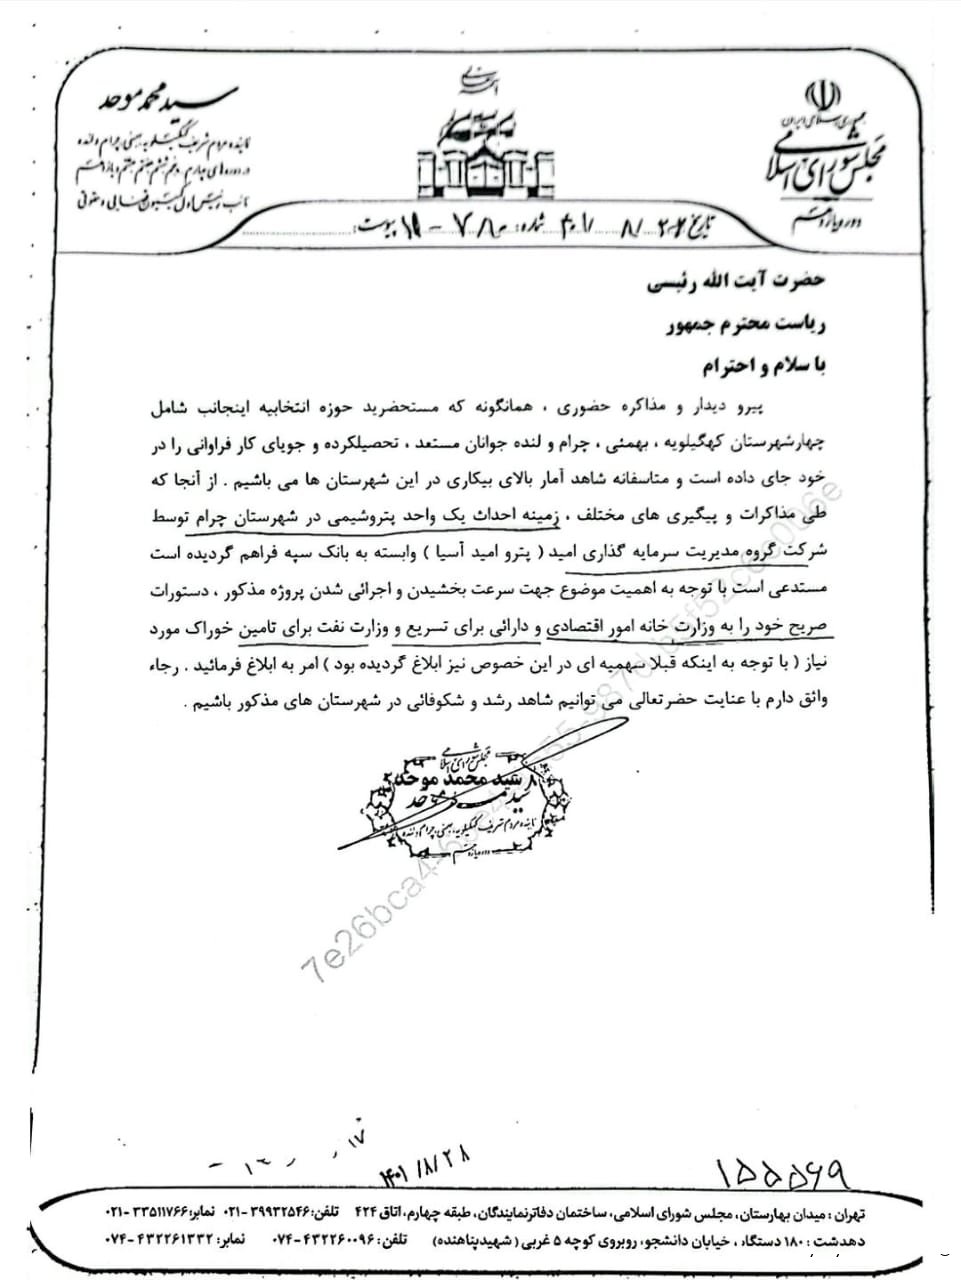 جمهوری اسلامی ایران
مجلس شورای اسلامی
دوره یازدهم
سید محمد موحد
نماینده مردم شریف کهگیلویه، بهمئی، چرام و لنده
در دوره های چهارم، پنجم، ششم، هفتم، هشتم و یازدهم
نائب رئیس اول کمیسیون قضایی و حقوقی
تاریخ
شماره:
پیوست:
حضرت آیت الله رئیسی
ریاست محترم جمهور
با سلام و احترام
پیرو دیدار و مذاکره حضوری ، همانگونه که مستحضرید حوزه انتخابیه اینجانب شامل
چهارشهرستان کهگیلویه ، بهمئی ، چرام و لنده جوانان مستعد ، تحصیلکرده و جویای کار فراوانی را در
خود جای داده است و متاسفانه شاهد آمار بالای بیکاری در این شهرستان ها می باشیم . از آنجا که
طی مذاکرات و پیگیری های مختلف ، زمینه احداث یک واحد پتروشیمی در شهرستان چرام توسط
شرکت گروه مدیریت سرمایه گذاری امید ( پترو امید آسیا ) وابسته به بانک سپه فراهم گردیده است
مستدعی است با توجه به اهمیت موضوع جهت سرعت بخشیدن و اجرائی شدن پروژه مذکور ، دستورات
صریح خود را به وزارت خانه امور اقتصادی و دارائی برای تسریع و وزارت نفت برای تامین خوراک مورد
نیاز ( با توجه به اینکه قبلا سهمیه ای در این خصوص نیز ابلاغ گردیده بود ) امر به ابلاغ فرمائید . رجاء
واثق دارم با عنایت حضرتعالی می توانیم شاهد رشد و شکوفائی در شهرستان های مذکور باشیم .
مجلس شورای اسلامی
سید محمد موحد
سید محمد موحد
نماینده مردم شریف کهگیلویه، بهمئی، چرام و لنده
دوره یازدهم
۱۴۰۱/۸/۲۸
۱۵۵۵۶۹
تهران : میدان بهارستان، مجلس شورای اسلامی، ساختمان دفاترنمایندگان، طبقه چهارم، اتاق ۴۲۴ تلفن: ۳۹۹۳۲۵۴۶ -۰۲۱ نمابر: ۳۳۵۱۱۷۶۶ -۰۲۱
دهدشت : ۱۸۰ دستگاه ، خیابان دانشجو، روبروی کوچه ۵ غربی ( شهیدپناهنده) تلفن : ۴۳۲۲۶۰۰۹۶ -۰۷۴ نمابر: ۴۳۲۲۶۱۳۳۲ -۰۷۴